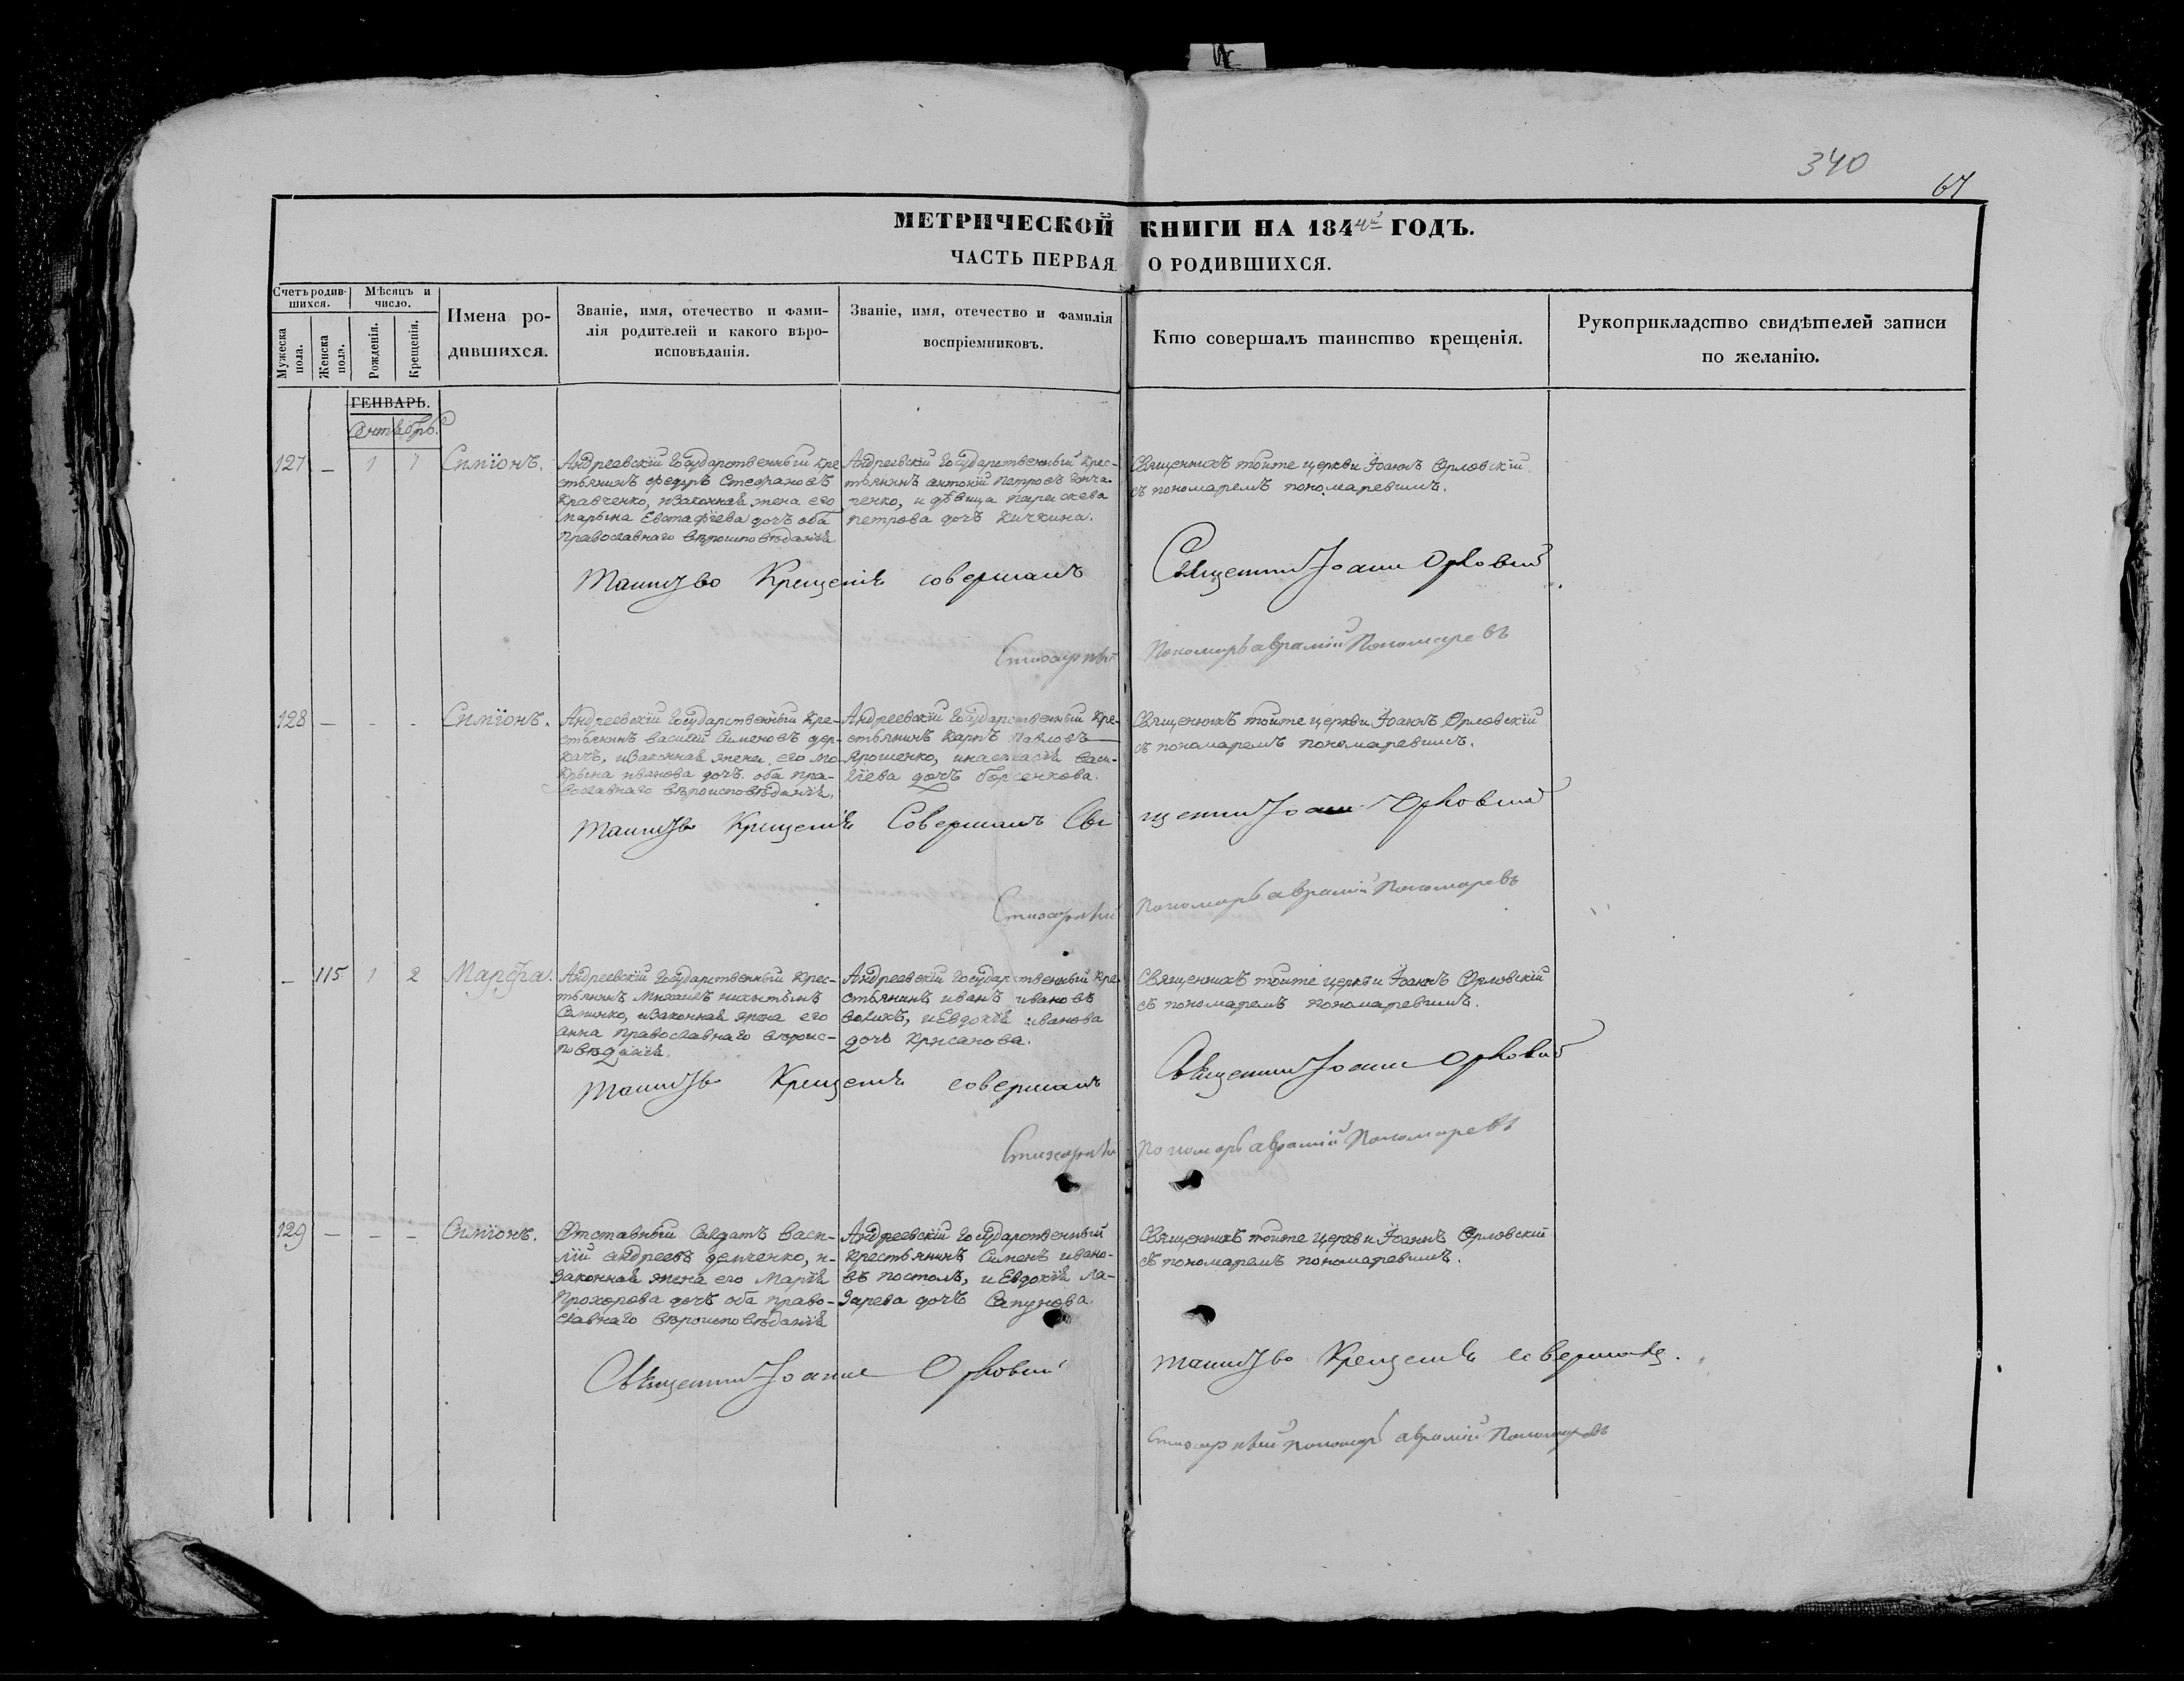 340
67
МЕТРИЧЕСКОЙ КНИГИ НА 1844й ГОДЪ.
ЧАСТЬ ПЕРВАЯ О РОДИВШИХСЯ.
Счетъ родив-
шихся.
Мужеска пола.
Женска пола.
Мѣсяцъ и
число.
Рожденія.
Крещенія.
Имена ро-
дившихся.
Званіе, имя, отечество и фами-
лія родителей и какого вѣро-
исповѣданія.
Званіе, имя, отечество и фамилія
воспріемниковъ.
Кто совершалъ таинство крещенія.
Рукоприкладство свидѣтелей записи
по желанію.
ГЕНВАРЬ.
Сентябрь.
127 — 1 1 Симіонъ.
Андреевскій Государственный Кре
стьянинъ Федоръ Стефановъ
Кравченко, изаконная жена его
Марьина Евстафіева дочъ оба
Православнаго вѣроисповѣданія
Андреевскій Государственный Крес-
тьянинъ антоній Петровъ Гонча-
ренко, и дѣвица параскева
петрова дочъ Кичкина.
Священникъ тойте церкви Іоаннъ Орловскій
съ пономаремъ пономаревымъ.
Таинство Крещенія совершалъ Священник Іоанн Орловскій
Стихарный Пономарь аврамій Пономаревъ
128 — - - Симіонъ.
Андреевскій Государственный Кре-
стьянинъ василій Сименовъ дер-
качъ, изаконная жена его мо-
крына иванова дочъ. оба пра-
вославнаго вѣроисповѣданія.
Андреевскій Государственный Кре-
стьянинъ Карпъ Павловъ
Ярошенко, инастасія васи-
ліева дочъ борсенкова.
Священникъ тойте церкви Іоаннъ Орловскій
съ пономаремъ пономаревымъ.
Таинство Крещенія Совершалъ Священник Іоанн Орловскій
Стихарный Пономарь аврамій Пономаревъ
— 115 1 2 Марфа.
Андреевскій Государственный Крес-
тьянинъ Михаилъ никитинъ
изаконная жена его
анна православнаго вѣроис-
повѣданія.
Андреевскій Государственный Кре
стьянинъ иванъ ивановъ
воликъ, иЕвдокія иванова
дочъ Крысанова.
Священникъ тойте церкви Іоаннъ Орловскій
съ пономаремъ пономаревымъ.
Таинство Крещенія совершалъ Священник Іоанн Орловскій
Стихарный Пономарь аврамій Пономаревъ
129 — - - Симіонъ.
Отставный Салдатъ васи-
лій андреевъ демченко, и-
законная жена его Марія
Прохорова дочъ оба право-
славнаго вѣроисповѣданія
Андреевскій Государственный
Крестьянинъ Сименъ ивано-
въ постолъ, и Евдокія Ла-
зарева дочъ Сапунова.
Священникъ тойте церкви Іоаннъ Орловскій
съ пономаремъ пономаревымъ.
Священник Іоанн Орловскій таинство Крещенія совершалъ.
Стихарный пономарь аврамій Пономаревъ